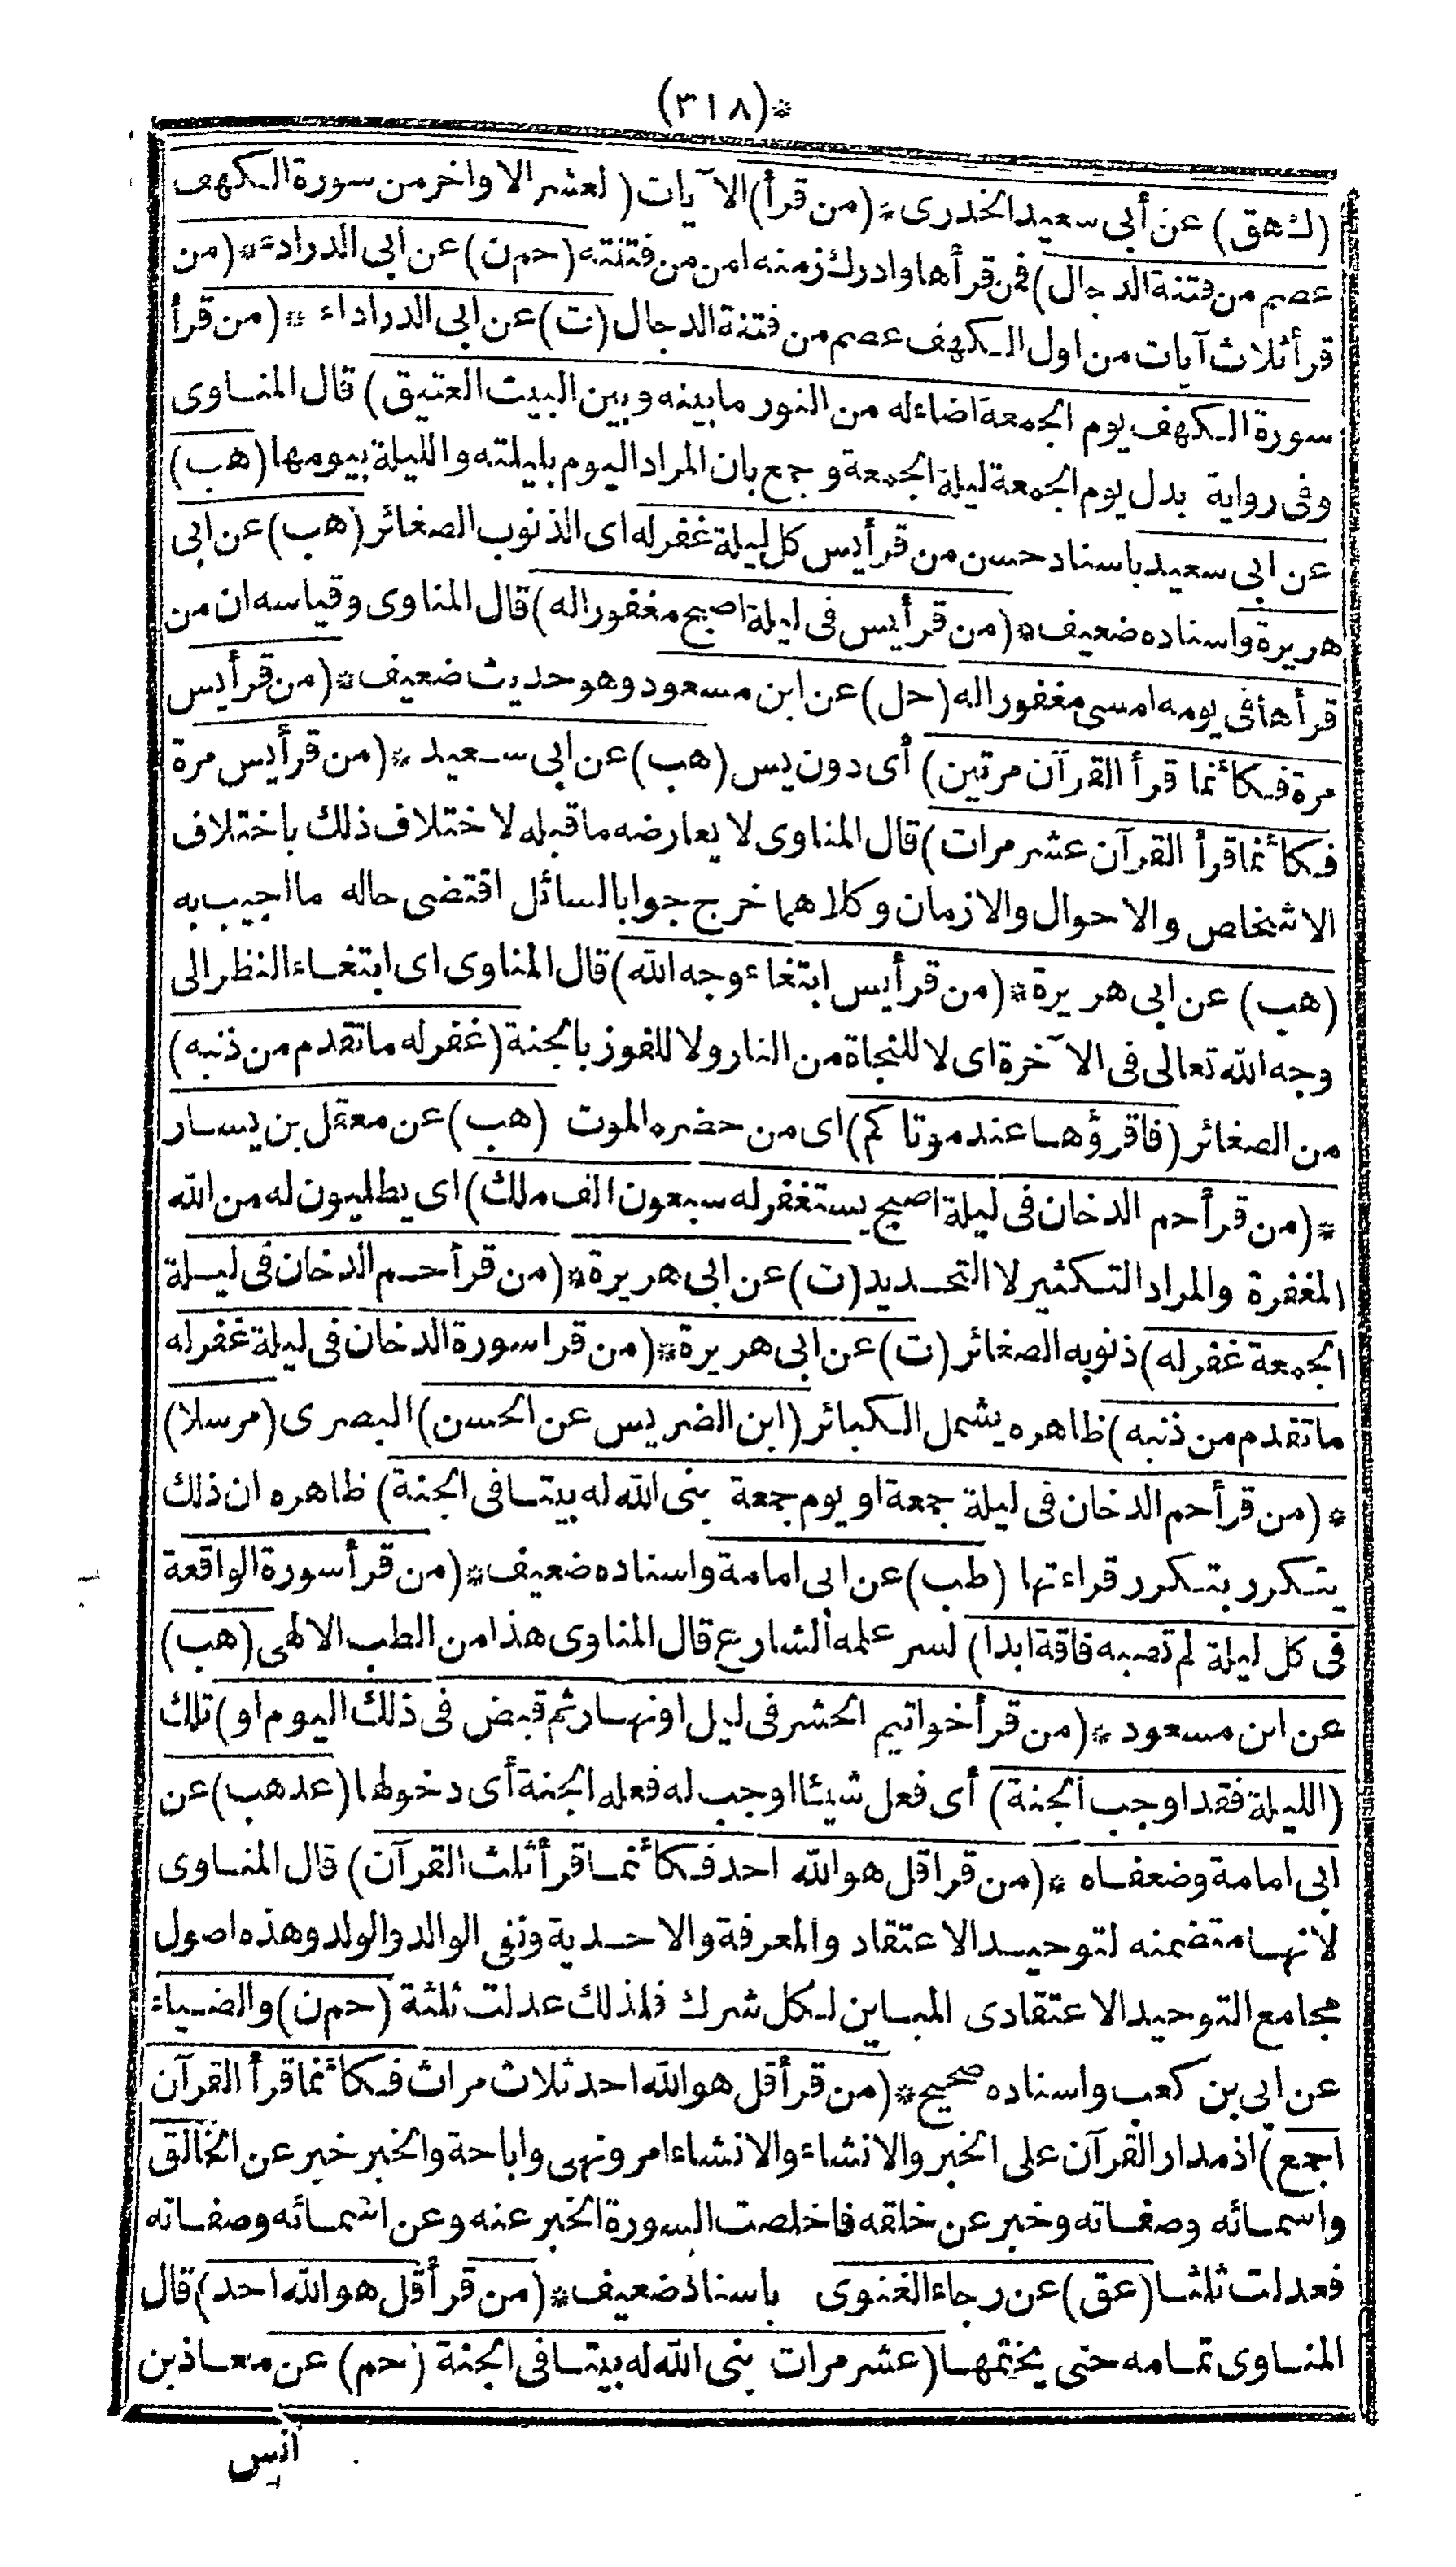 *(٣١٨)
(ك هق) عن أبى سعيد الخدرى *(من قرأ) الآيات (العشر الاواخر من سورة الكهف
عصم من فتنة الدجال) فمن قرأها وادرك زمنه امن من فتنته (حم ن) عن ابى الدرداء *(من
قرأ ثلاث آيات من اول الكهف عصم من فتنة الدجال (ت) عن ابى الدرداء *(من قرأ
سورة الكهف يوم الجمعة اضاء له من النور ما بينه وبين البيت العتيق) قال المناوى
وفى رواية بدل يوم الجمعة ليلة الجمعة وجمع بان المراد اليوم بليلته والليلة بيومها (هب)
عن ابى سعيد باسناد حسن من قرأ يس كل ليلة غفر له اى الذنوب الصغائر (هب) عن ابى
هريرة واسناده ضعيف *(من قرأ يس فى ليلة اصبح مغفورا له) قال المناوى وقياسه ان من
قرأها فى يومه امسى مغفورا له (حل) عن ابن مسعود وهو حديث ضعيف *(من قرأ يس
مرة فكأنما قرأ القرآن مرتين) أى دون يس (هب) عن ابى سعيد *(من قرأ يس مرة
فكأنما قرأ القرآن عشر مرات) قال المناوى لا يعارضه ما قبله لاختلاف ذلك باختلاف
الاشخاص والاحوال والازمان وكلاهما خرج جوابا لسائل اقتضى حاله ما اجيب به
(هب) عن ابى هريرة *(من قرأ يس ابتغاء وجه الله) قال المناوى اى ابتغاء النظر الى
وجه الله تعالى فى الآخرة اى لا للنجاة من النار ولا للفوز بالجنة (غفر له ما تقدم من ذنبه)
من الصغائر (فاقرؤها عند موتاكم) اى من حضره الموت (هب) عن معقل بن يسار
*(من قرأ حم الدخان فى ليلة اصبح يستغفر له سبعون الف ملك) اى يطلبون له من الله
المغفرة والمراد التكثير لا التحديد (ت) عن ابى هريرة *(من قرأ حم الدخان فى ليلة
الجمعة غفر له) ذنوبه الصغائر (ت) عن ابى هريرة *(من قرا سورة الدخان فى ليلة غفر له
ما تقدم من ذنبه) ظاهره يشمل الكبائر (ابن الضريس عن الحسن) البصرى (مرسلا)
*(من قرأ حم الدخان فى ليلة جمعة او يوم جمعة بنى الله له بيتا فى الجنة) ظاهره ان ذلك
يتكرر بتكرر قراءتها (طب) عن ابى امامة واسناده ضعيف *(من قرأ سورة الواقعة
فى كل ليلة لم تصبه فاقة ابدا) لسر علمه الشارع قال المناوى هذا من الطب الالهى (هب)
عن ابن مسعود *(من قرأ خواتيم الحشر فى ليل او نهار ثم قبض فى ذلك اليوم او) تلك
(الليلة فقد اوجب الجنة) أى فعل شيئا اوجب له فعله الجنة أى دخولها (عد هب) عن
ابى امامة وضعفاه *(من قرا قل هو الله احد فكأنما قرأ ثلث القرآن) قال المناوى
لانها متضمنه لتوحيد الاعتقاد والمعرفة والاحدية ونفى الوالد والولد وهذه اصول
مجامع التوحيد الاعتقادى المباين لكل شرك فلذلك عدلت ثلثة (حم ن) والضياء
عن ابى بن كعب واسناده صحيح *(من قرأ قل هو الله احد ثلاث مرات فكأنما قرأ القرآن
اجمع) اذ مدار القرآن على الخبر والانشاء والانشاء امر ونهى واباحة والخبر خبر عن الخالق
واسمائه وصفاته وخبر عن خلقه فاخلصت السورة الخبر عنه وعن اسمائه وصفاته
فعدلت ثلثا (عق) عن رجاء الغنوى باسناد ضعيف *(من قرأ قل هو الله احد) قال
المناوى تمامه حتى يختمها (عشر مرات بنى الله له بيتا فى الجنة (حم) عن معاذ بن
انس